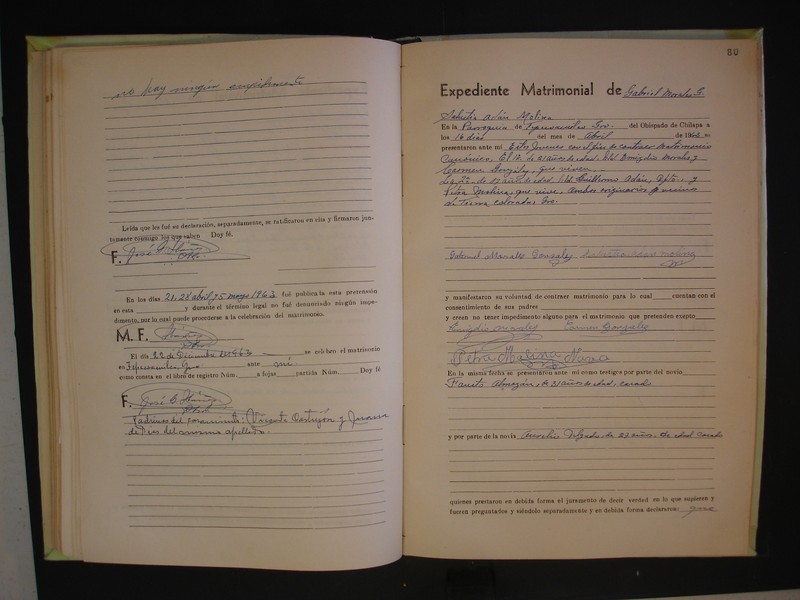 no hay ningún impedimento
Leída que les fué su declaración, separadamente, se ratificaron en ella y firmaron jun-
tamente conmigo los que saben Doy fé.
F. José
En los días 21, 28 abril, y 5 mayo 1963 fué publicada esta pretensión
en esta y durante el término legal no fué denunciado ningún impe-
dimento, por lo cual puede procederse a la celebración del matrimonio.
M. F.
El día 22 de Diciembre de 1963 se celebró el matrimonio
en Tepecoacuilco, Gro ante mí
como consta en el libro de registro Núm. a fojas partida Núm. Doy fé
F. José
Padrinos del casamiento: Vicente y Juana
de Dios del mismo apellido.
80
Expediente Matrimonial de Gabriel Morales G.
Adán Molina
En la Parroquia de Gro. del Obispado de Chilapa a
los 16 días del mes de Abril de 1963 se
presentaron ante mí Estos jóvenes con el fin de contraer matrimonio
Canónico. El de 21 años de edad, Emigdio Morales y
Carmen González, que viven.
de 17 años de edad, Guillermo Adán, y
Petra Molina, que vive. Ambos originarios y vecinos
de Tierra Colorada, Gro.
Gabriel Morales Gonzales adan molina
y manifestaron su voluntad de contraer matrimonio para lo cual cuentan con el
consentimiento de sus padres
y creen no tener impedimento alguno para el matrimonio que pretenden excpto
Emigdio morales Carmen Gonzales
Petra Molina
En la misma fecha se presentaron ante mí como testigos por parte del novio
Fausto Almazán, de 31 años de edad, casado
y por parte de la novia Aurelio Delgado de 27 años de edad casado
quienes prestaron en debida forma el juramento de decir verdad en lo que supieren y
fueren preguntados y siéndolo separadamente y en debida forma declararon: que